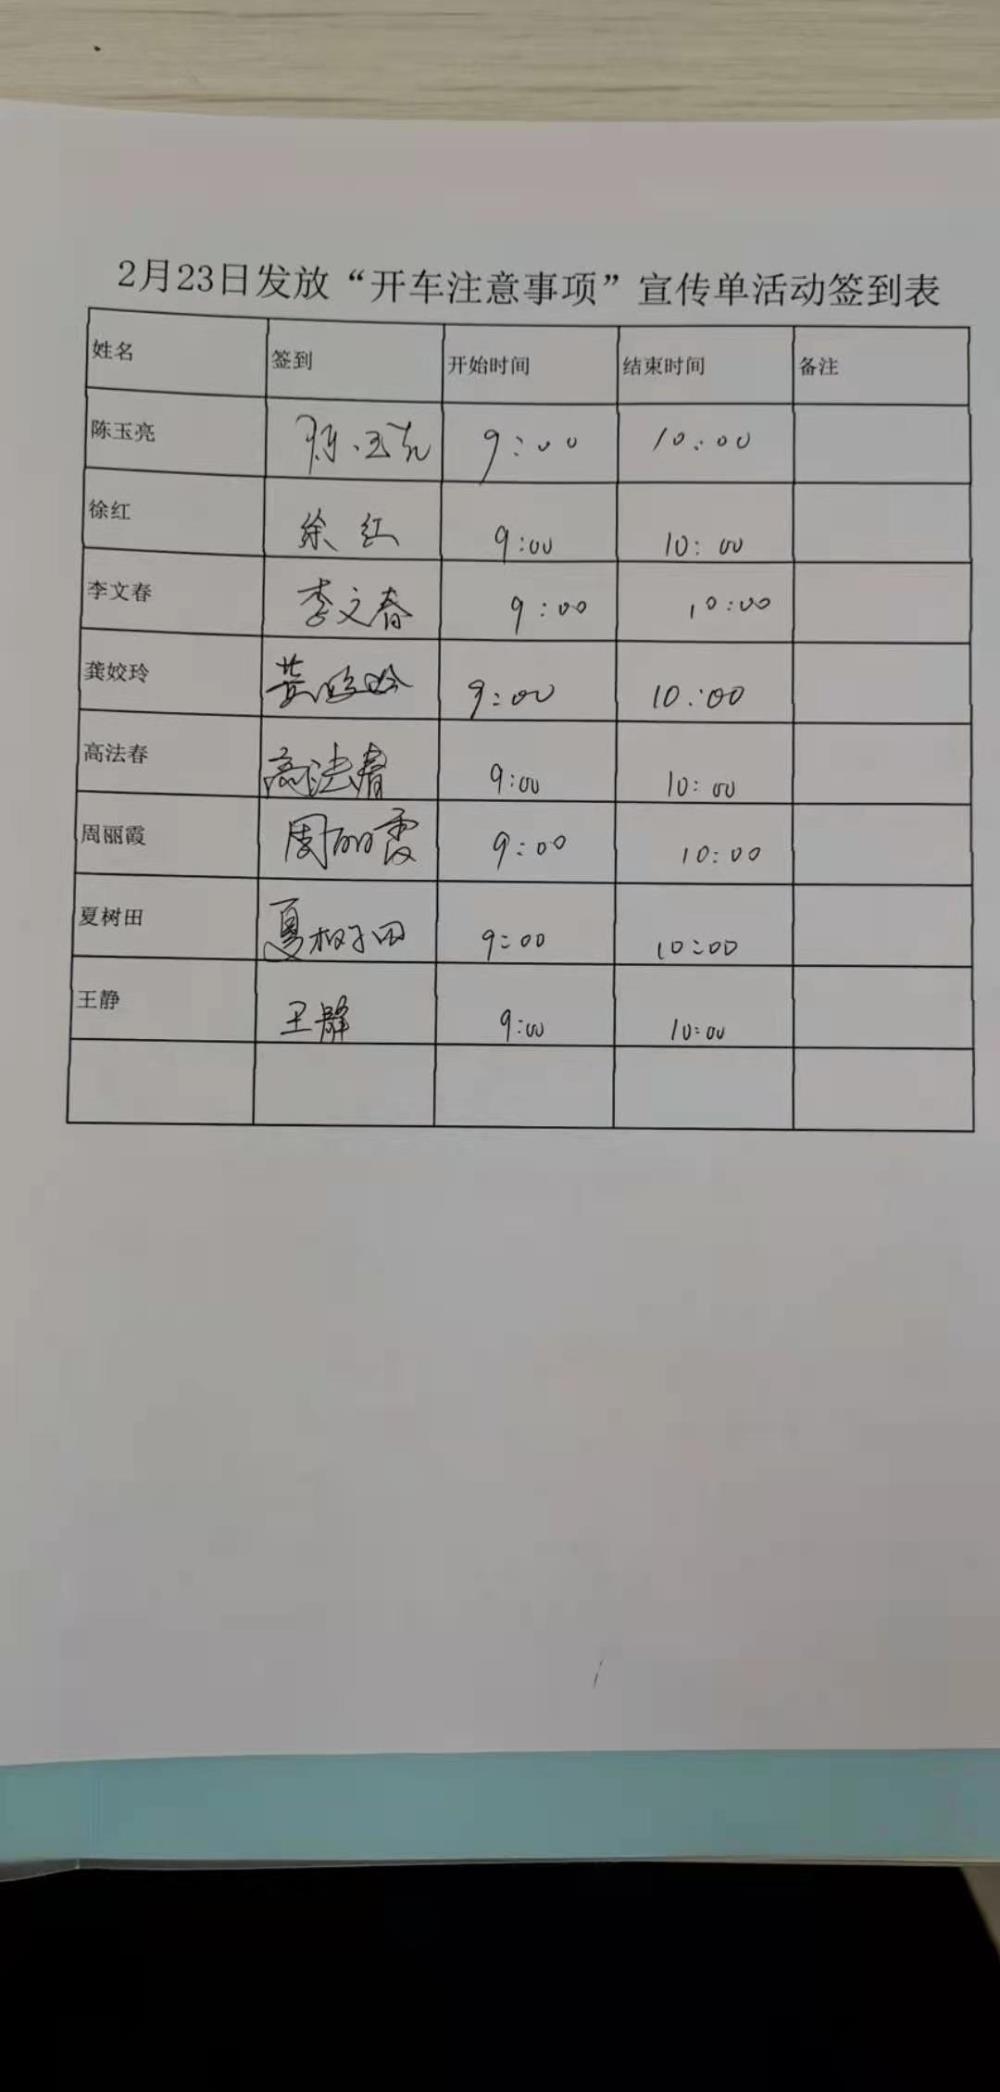 2月23日发放“开车注意事项”宣传单活动签到表
姓名 签到 开始时间 结束时间 备注
陈玉亮 陈玉亮 9:00 10:00
徐红 徐红 9:00 10:00
李文春 李文春 9:00 10:00
龚姣玲 龚姣玲 9:00 10:00
高法春 高法春 9:00 10:00
周丽霞 周丽霞 9:00 10:00
夏树田 夏树田 9:00 10:00
王静 王静 9:00 10:00